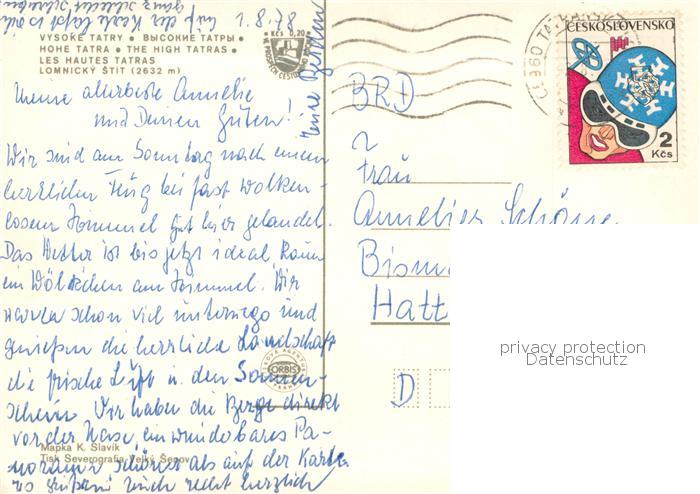 1.8.78
VYSOKÉ TATRY • ВЫСОКИЕ ТАТРЫ •
HOHE TATRA • THE HIGH TATRAS •
LES HAUTES TATRAS
LOMNICKÝ ŠTÍT (2632 m)
Kčs 0,20
Meine allerbeste Annelie
und Deinen Guten!
Wir sind am Sonntag nach einem
herrlichen Flug bei fast wolken-
losem Himmel gut hier gelandet.
Das Wetter ist bis jetzt ideal. Kaum
ein Wölkchen am Himmel. Wir
waren schon viel unterwegs und
genießen die herrliche Landschaft
die frische Luft u. den Sonnen-
schein. Wir haben die Berge direkt
vor der Nase, ein wunderbares Pa-
norama schöner als auf der Karte
es grüßen Euch recht herzlich
Mapka K. Slavík
Tisk Severografia, Velký Šenov
ORBIS
ČESKOSLOVENSKO
2
Kčs
BRD
Frau
Annelies
Bism
Hatt
D
privacy protection
Datenschutz